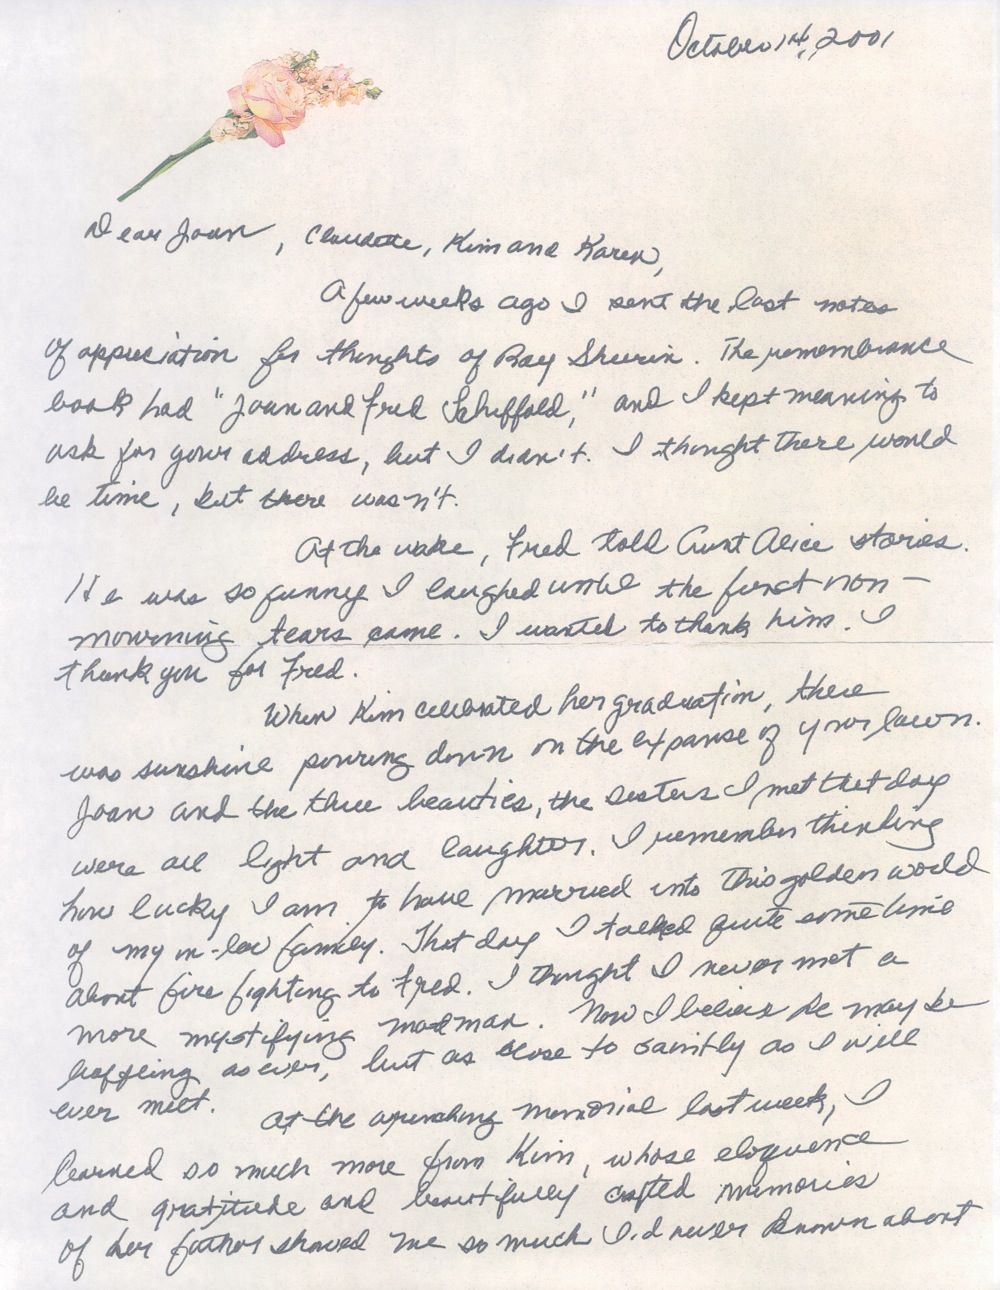 October 14, 2001
Dear Joan, Claudette, Kim and Karen,
A few weeks ago I sent the last notes
of appreciation for thoughts of Ray Sheerin. The remembrance
book had "Joan and Fred Scheffold," and I kept meaning to
ask for your address, but I didn't. I thought there would
be time, but there wasn't.
At the wake, Fred told Aunt Alice stories.
He was so funny I laughed until the first non-
mourning tears came. I wanted to thank him. I
thank you for Fred.
When Kim celebrated her graduation, there
was sunshine pouring down on the expanse of your lawn.
Joan and the three beauties, the sisters I met that day
were all light and laughter. I remember thinking
how lucky I am to have married into this golden world
of my in-law family. That day I talked quite some time
about fire fighting to Fred. I thought I never met a
more mystifying madman. Now I believe he may be
baffling as ever, but as close to saintly as I will
ever meet.
At the memorial last week, I
learned so much more from Kim, whose eloquence
and gratitude and beautifully crafted memories
of her father showed me so much I'd never known about